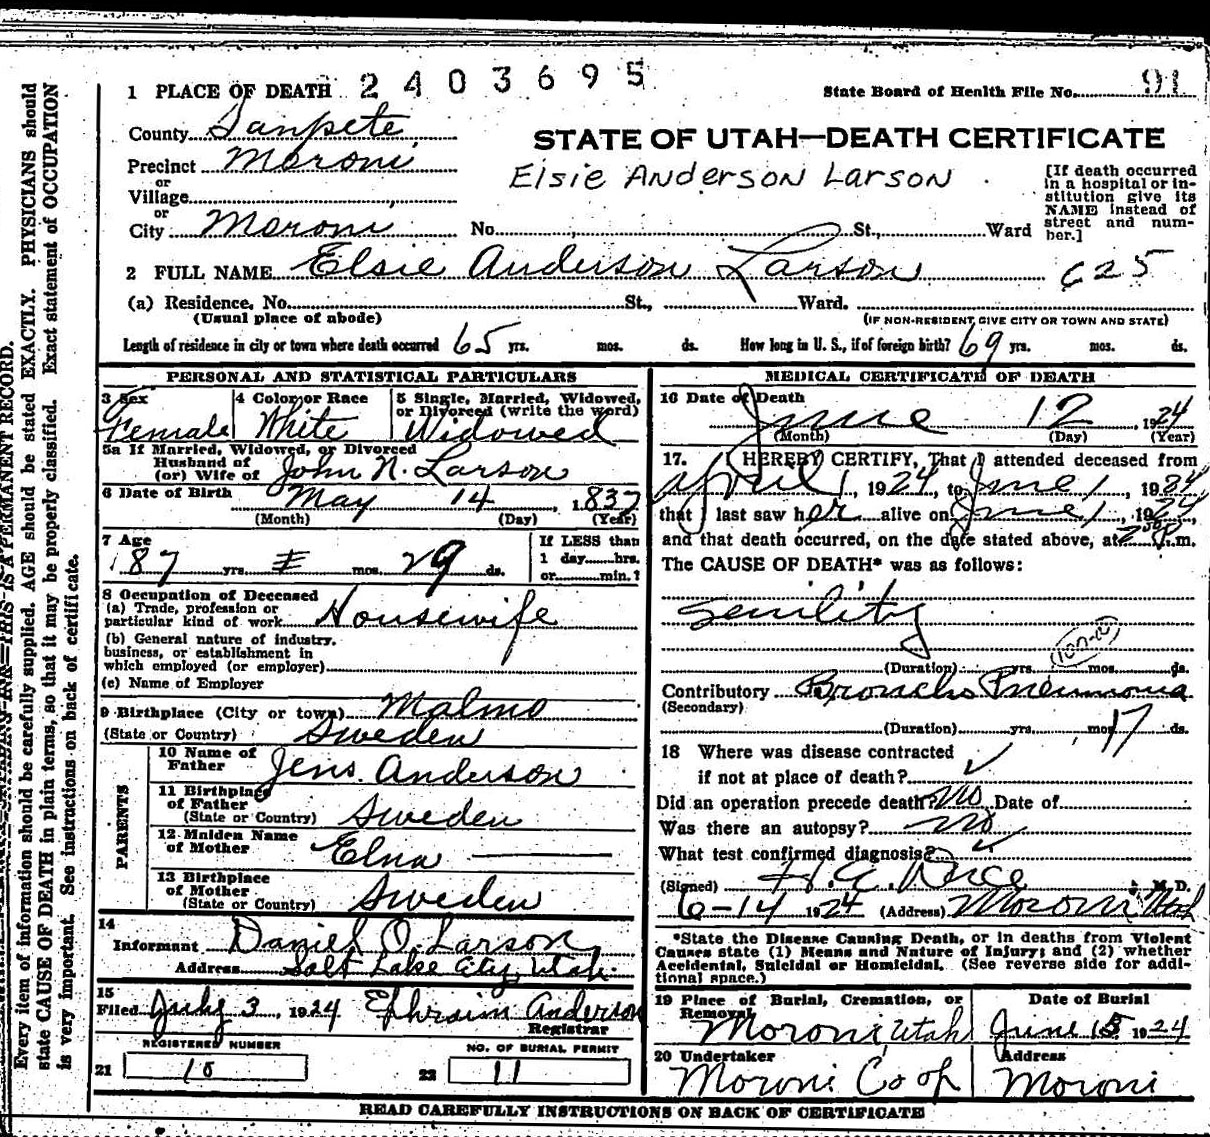 1 PLACE OF DEATH 2403695
State Board of Health File No. 91
County Sanpete
STATE OF UTAH—DEATH CERTIFICATE
Precinct Moroni
Elsie Anderson Larson
[If death occurred in a hospital or institution give its NAME instead of street and number.]
or
Village
or
City Moroni No. St., Ward
2 FULL NAME Elsie Anderson Larson 625
(a) Residence, No. St., Ward.
(Usual place of abode) (IF NON-RESIDENT GIVE CITY OR TOWN AND STATE)
Length of residence in city or town where death occurred 65 yrs. mos. ds. How long in U. S., if of foreign birth? 69 yrs. mos. ds.
PERSONAL AND STATISTICAL PARTICULARS
3 Sex Female
4 Color or Race White
5 Single, Married, Widowed, or Divorced (write the word) Widowed
5a If Married, Widowed, or Divorced
Husband of
(or) Wife of John N. Larson
6 Date of Birth May 14, 1837
(Month) (Day) (Year)
7 Age 87 yrs. mos. 29 ds.
If LESS than
1 day hrs.
or min.?
8 Occupation of Deceased
(a) Trade, profession or
particular kind of work Housewife
(b) General nature of industry,
business, or establishment in
which employed (or employer)
(c) Name of Employer
9 Birthplace (City or town) Malmo
(State or Country) Sweden
PARENTS
10 Name of
Father Jens Anderson
11 Birthplace
of Father
(State or Country) Sweden
12 Maiden Name
of Mother Elna
13 Birthplace
of Mother
(State or Country) Sweden
14
Informant Daniel O. Larson
Address Salt Lake City, Utah.
15
Filed July 3, 1924 Ephraim Anderson
Registrar
REGISTERED NUMBER NO. OF BURIAL PERMIT
21 10 22 11
MEDICAL CERTIFICATE OF DEATH
16 Date of Death June 12, 1924
(Month) (Day) (Year)
17. I HEREBY CERTIFY, That I attended deceased from
April 1, 1924, to June 1, 1924
that I last saw her alive on June 1, 1924,
and that death occurred, on the date stated above, at P.m.
The CAUSE OF DEATH* was as follows:
Senility
(Duration) yrs. mos. ds.
Contributory Broncho Pneumonia
(Secondary)
(Duration) yrs. mos. 17 ds.
18 Where was disease contracted
if not at place of death? ✓
Did an operation precede death? No Date of
Was there an autopsy? No
What test confirmed diagnosis? ✓
(Signed) H. A. Dice, M. D.
6-14 1924 (Address) Moroni Utah
*State the Disease Causing Death, or in deaths from Violent
Causes state (1) Means and Nature of Injury; and (2) whether
Accidental, Suicidal or Homicidal. (See reverse side for additional space.)
19 Place of Burial, Cremation, or
Removal Moroni, Utah
Date of Burial
June 15 1924
20 Undertaker
Moroni Co op
Address
Moroni
READ CAREFULLY INSTRUCTIONS ON BACK OF CERTIFICATE
Every item of information should be carefully supplied. AGE should be stated EXACTLY. PHYSICIANS should
state CAUSE OF DEATH in plain terms, so that it may be properly classified. Exact statement of OCCUPATION
is very important. See instructions on back of certificate.